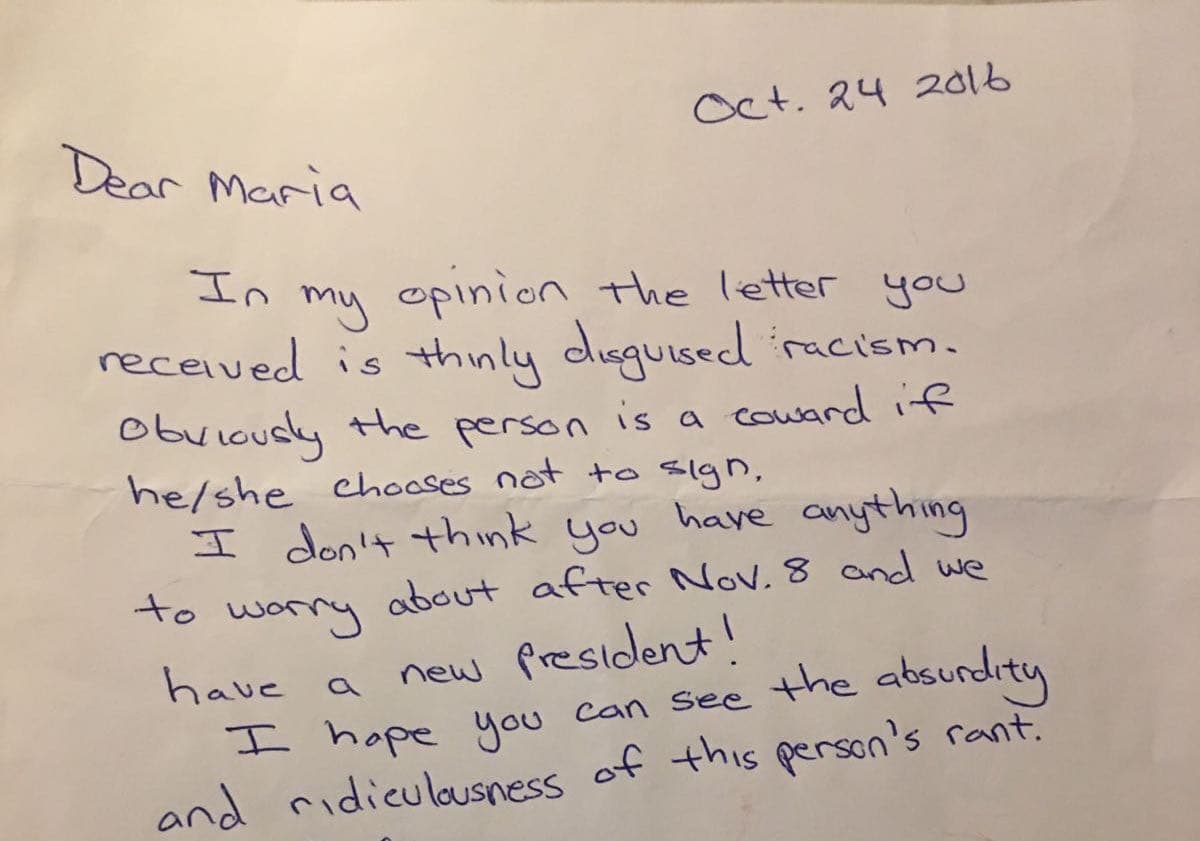 Oct. 24 2016
Dear Maria
In my opinion the letter you
received is thinly disguised racism.
Obviously the person is a coward if
he/she chooses not to sign.
I don't think you have anything
to worry about after Nov. 8 and we
have a new President!
I hope you can see the absurdity
and ridiculousness of this person's rant.